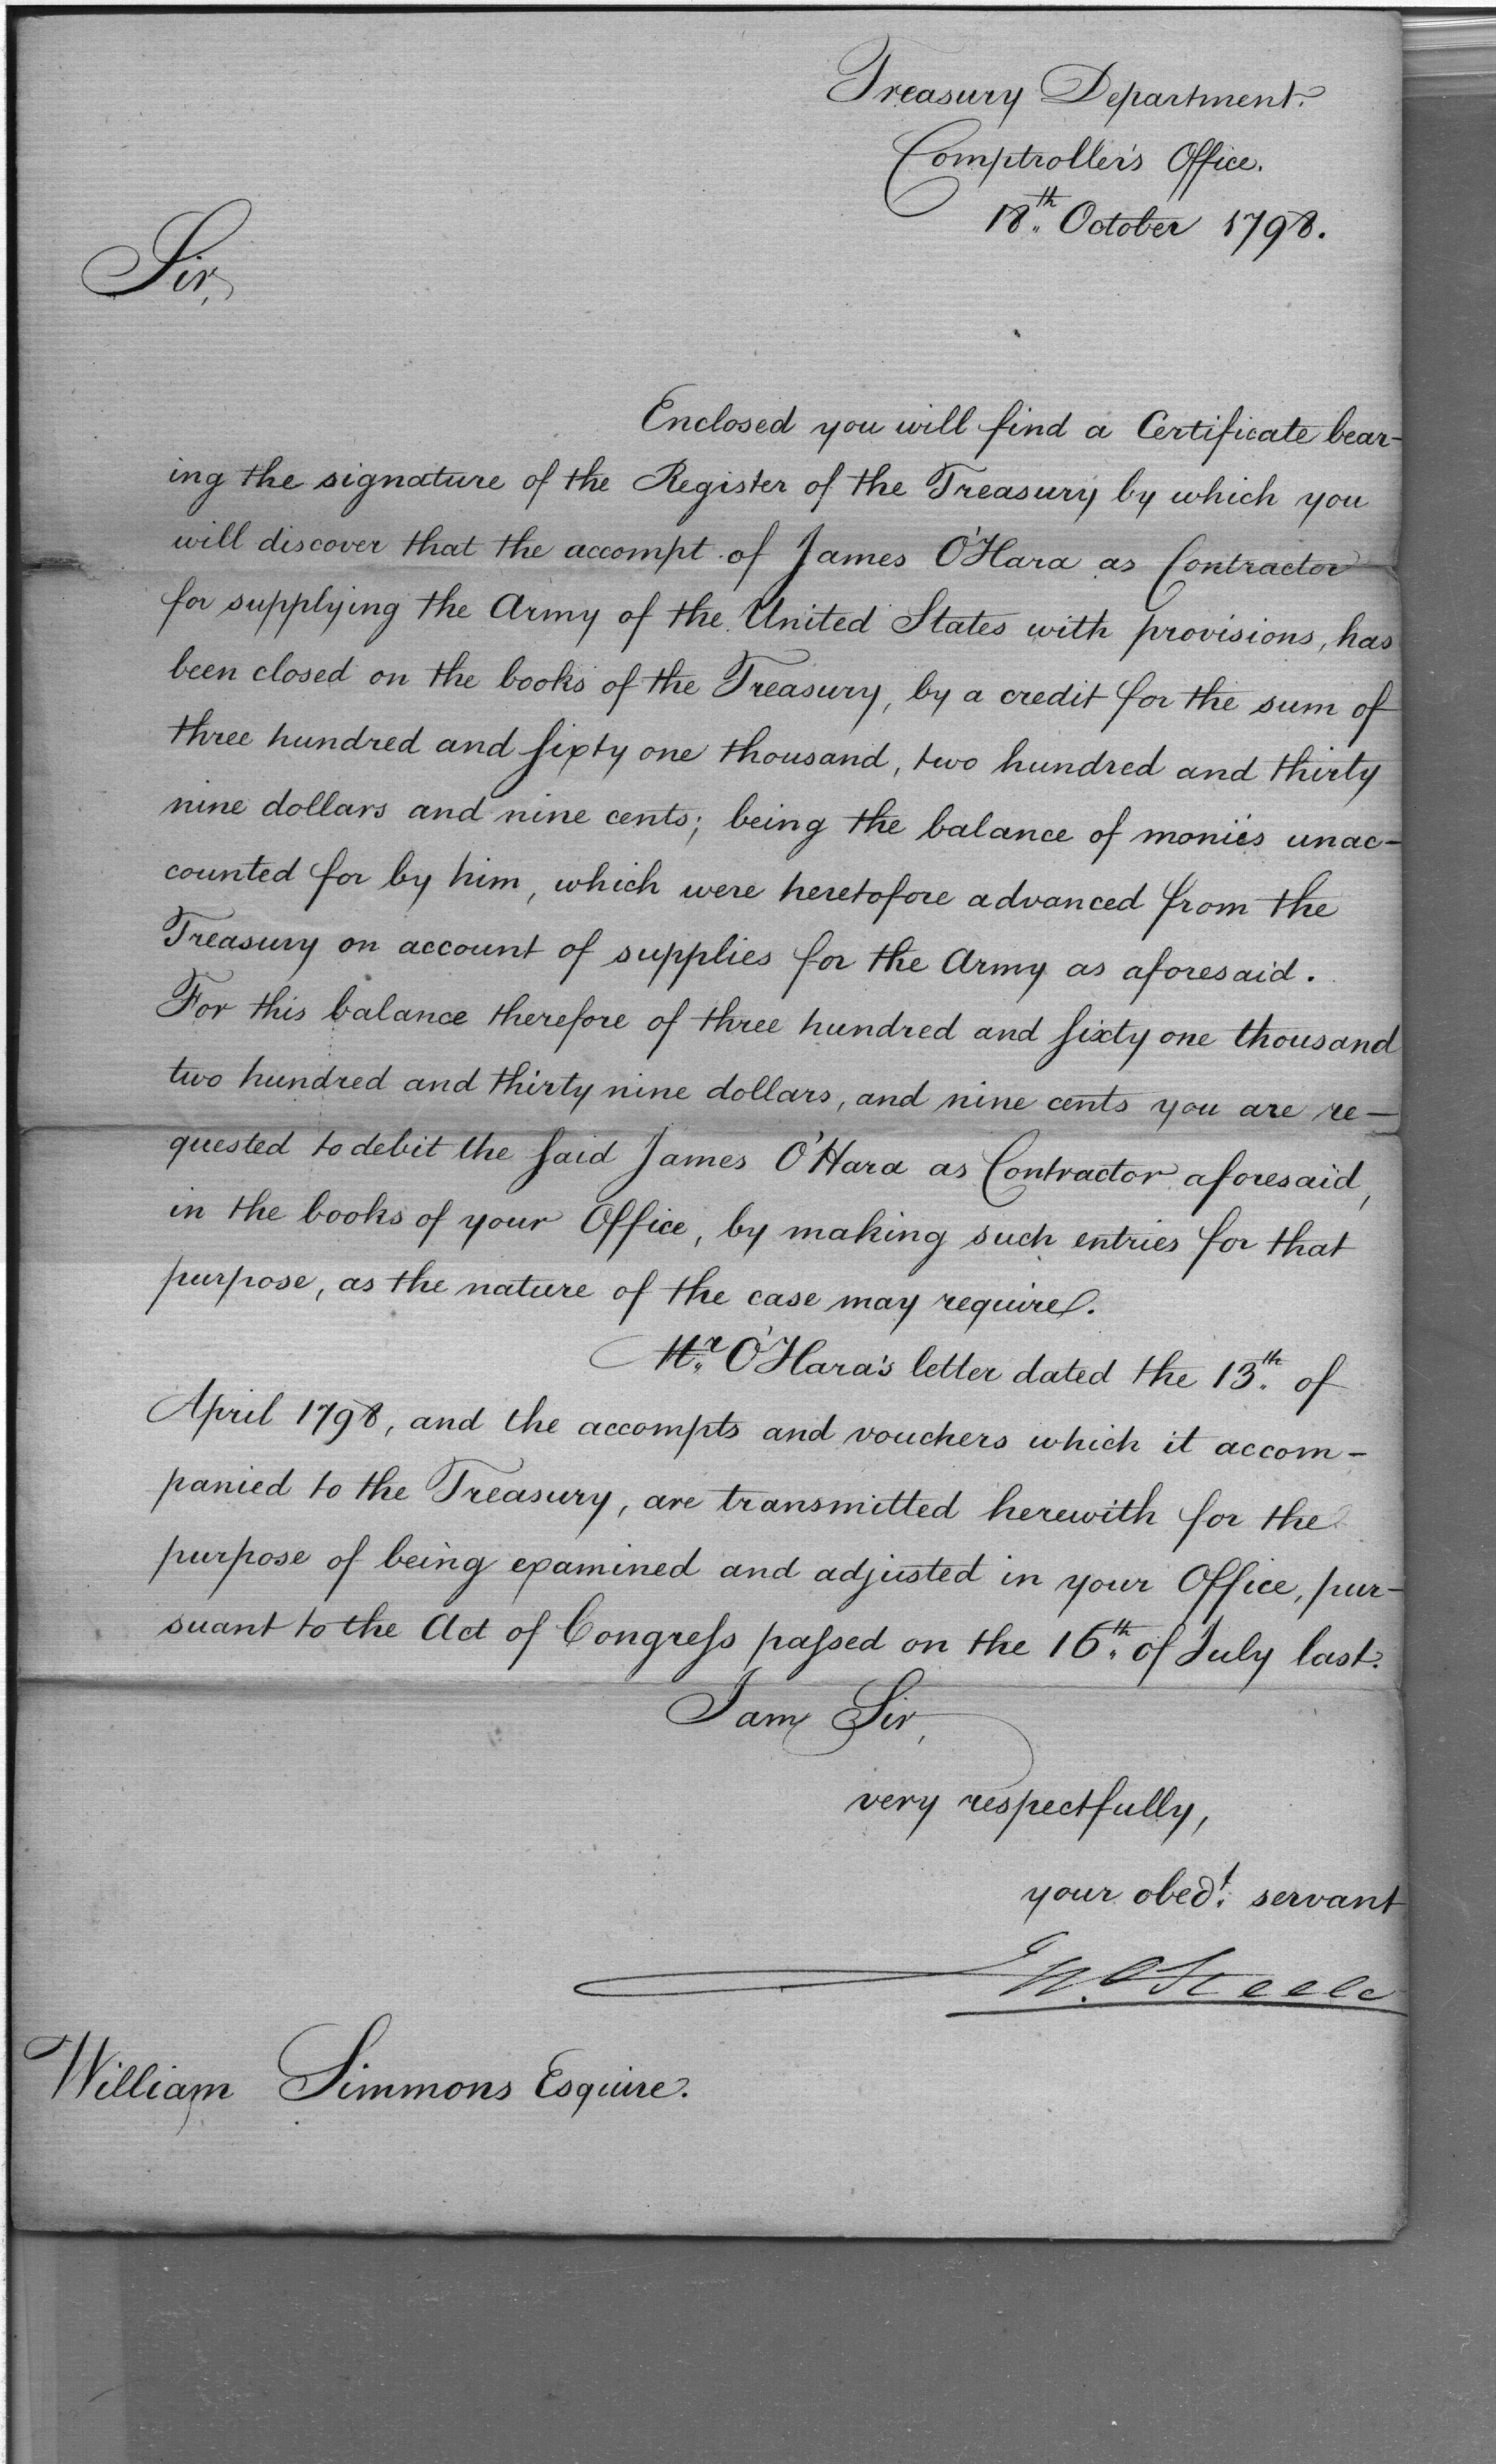 Treasury Department.
Comptroller's Office.
18th October 1798.
Sir,
Enclosed you will find a Certificate bear-
ing the signature of the Register of the Treasury by which you
will discover that the accompt of James O'Hara as Contractor
for supplying the Army of the United States with provisions, has
been closed on the books of the Treasury, by a credit for the sum of
three hundred and sixty one thousand, two hundred and thirty
nine dollars and nine cents; being the balance of monies unac-
counted for by him, which were heretofore advanced from the
Treasury on account of supplies for the Army as aforesaid.
For this balance therefore of three hundred and sixty one thousand
two hundred and thirty nine dollars, and nine cents you are re-
quested to debit the said James O'Hara as Contractor aforesaid,
in the books of your Office, by making such entries for that
purpose, as the nature of the case may require.
Mr. O'Hara's letter dated the 13th of
April 1798, and the accompts and vouchers which it accom-
panied to the Treasury, are transmitted herewith for the
purpose of being examined and adjusted in your Office, pur-
suant to the Act of Congress passed on the 16th of July last.
I am Sir,
very respectfully,
your obedt. servant
Jno. Steele
William Simmons Esquire.